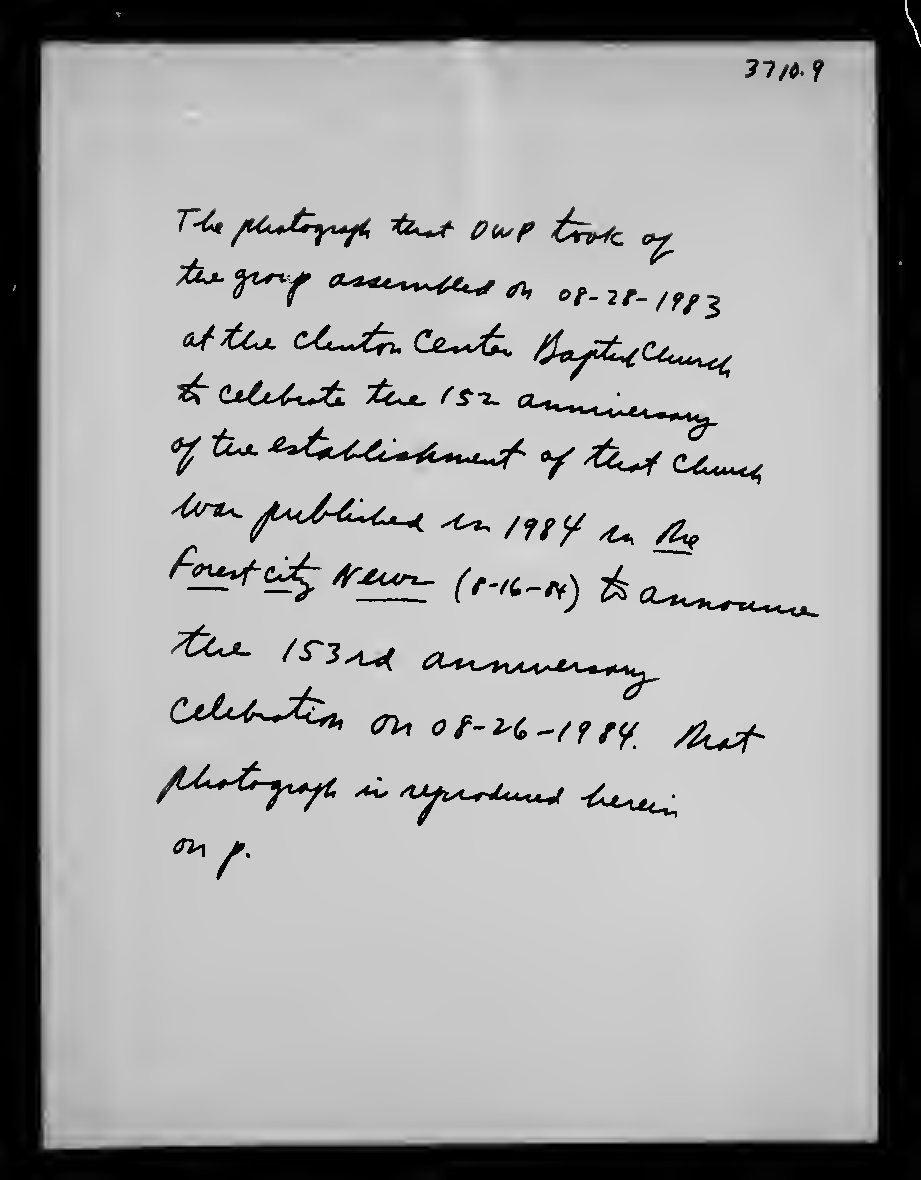 3710.9
The photograph that OWP took of
the group assembled on 08-28-1983
at the Clinton Center Baptist Church
to celebrate the 152 anniversary
of the establishment of that Church
was published in 1984 in The
Forest City News (8-16-84) to announce
the 153rd anniversary
celebration on 08-26-1984. That
photograph is reproduced herein
on p.